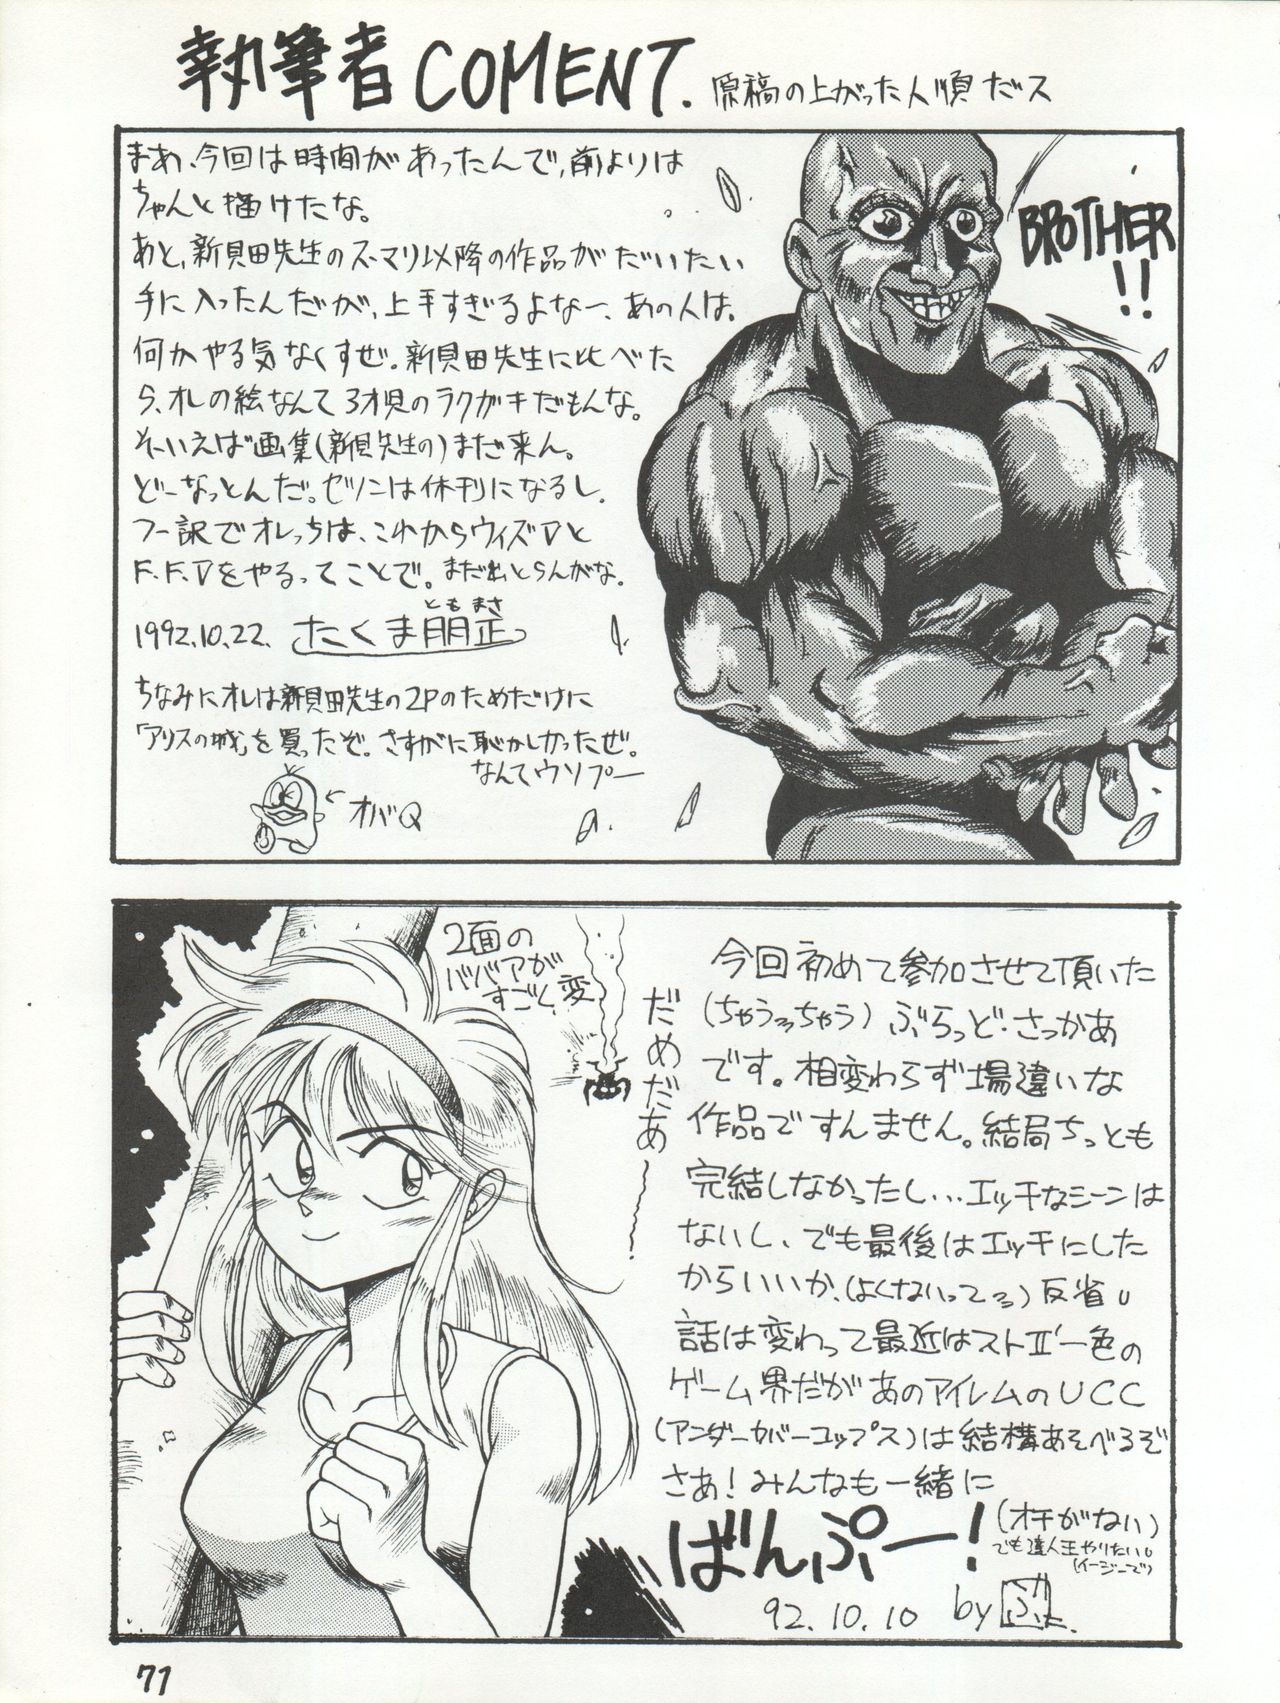 執筆者 COMENT. 原稿の上がった人順だス
まあ、今回は時間があったんで、前よりは
ちゃんと描けたな。
あと、新貝田先生のス・マリ以降の作品がだいたい
手に入ったんだが、上手すぎるよなー、あの人は。
何かやる気なくすぜ。新貝田先生に比べた
ら、オレの絵なんて3才児のラクガキだもんな。
そーいえば画集(新貝先生の)まだ来ん。
どーなっとんだ。ゼノンは休刊になるし、
フー訳でオレっちは、これからウィズⅤと
F.F.Ⅴをやるってことで。まだ出とらんがな。
ともまさ
1992.10.22. たくま朋正
ちなみにオレは新貝田先生の2Pのためだけに
「アリスの城」を買ったぞ。さすがに恥かしかったぜ。
なんてウソプー
←オバQ
BROTHER
!!
2面の
ババアが
すごく変
だめだぁ〜……
今回初めて参加させて頂いた
(ちゃうっちゃう) ぶらっど・さっかあ
です。相変わらず場違いな
作品ですんません。結局ちっとも
完結しなかったし…エッチなシーンは
ないし、でも最後はエッチにした
からいいか、(よくないってろ)反省。
話は変わって最近はストⅡ'一色の
ゲーム界だがあのアイレムのUCC
(アンダーカバーコップス)は結構あそべるぞ
さあ!みんなも一緒に
ばんぷー!
(オチがない)
でも達人王やりたい。
(イージーで)
92.10.10 by
71